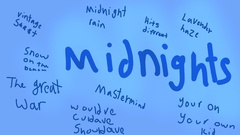 vintage
Midnight
rain
Hits
different
Lavender
haze
Snow
on the
MIDNIGHTS
The great
war
Mastermind
would've
Your on
Your own
kid